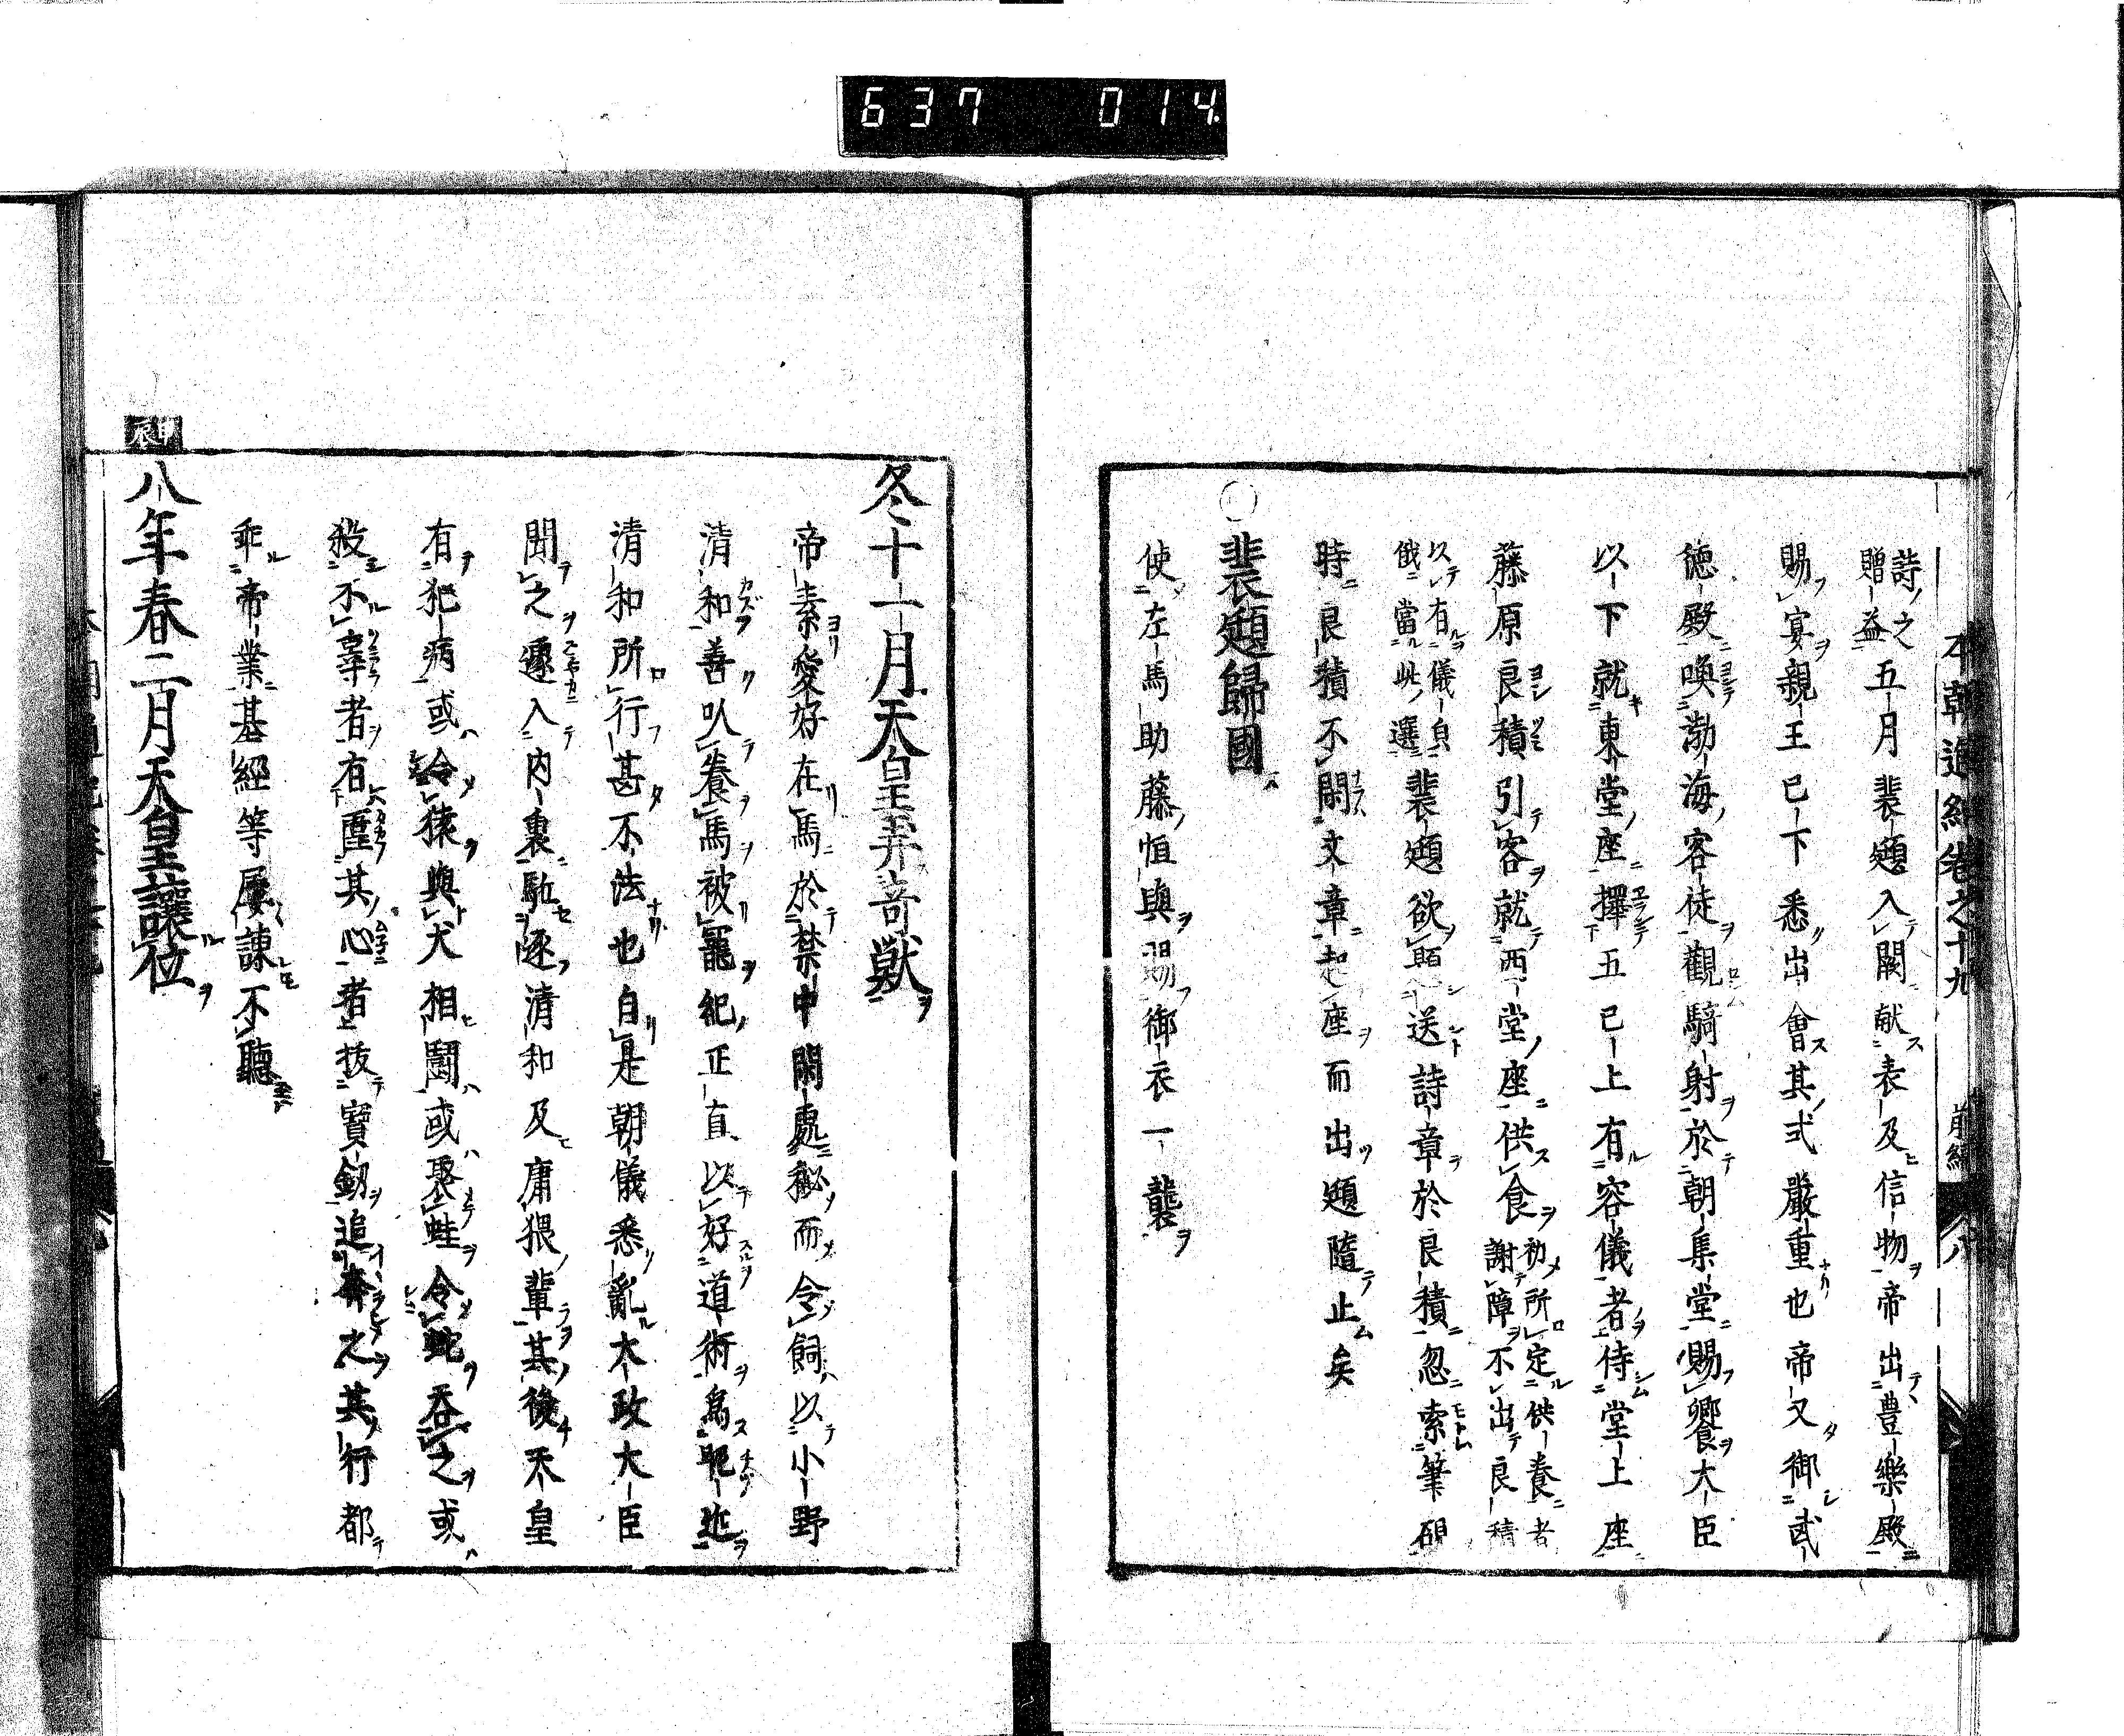 637 014
本朝通紀卷之十九 前編 八
詩之贈益五月裴頲入闕献表及信物帝出豊樂殿
賜宴親王已下悉出會其式嚴重也帝又御武
德殿喚渤海客徒觀騎射於朝集堂賜饗大臣
以下就東堂座擇五已上有容儀者侍堂上座
藤原良積引客就西堂座供食初所定供養者謝障不出良積
以有儀貟俄當此選裴頲欲送詩章於良積忽索筆硯
時良積不閑文章起座而出頲隨止矣
裴頲歸國
使左馬助藤恒與賜御衣一襲
冬十一月天皇弄奇獣
帝素愛好在馬於禁中閑處秘而令飼以小野
清和善以養馬被寵紀正直以好道術爲昵近
清和所行甚不法也自是朝儀悉亂太政大臣
聞之遽入内裏馳逐清和及庸猥輩其後天皇
有犯病或令猿與犬相鬪或聚蛙令蛇吞之或
殺不辜者有隱其心者抜寳劔追奔之其行都
乖帝業基經等屢諌不聽
甲辰
八年春二月天皇讓位